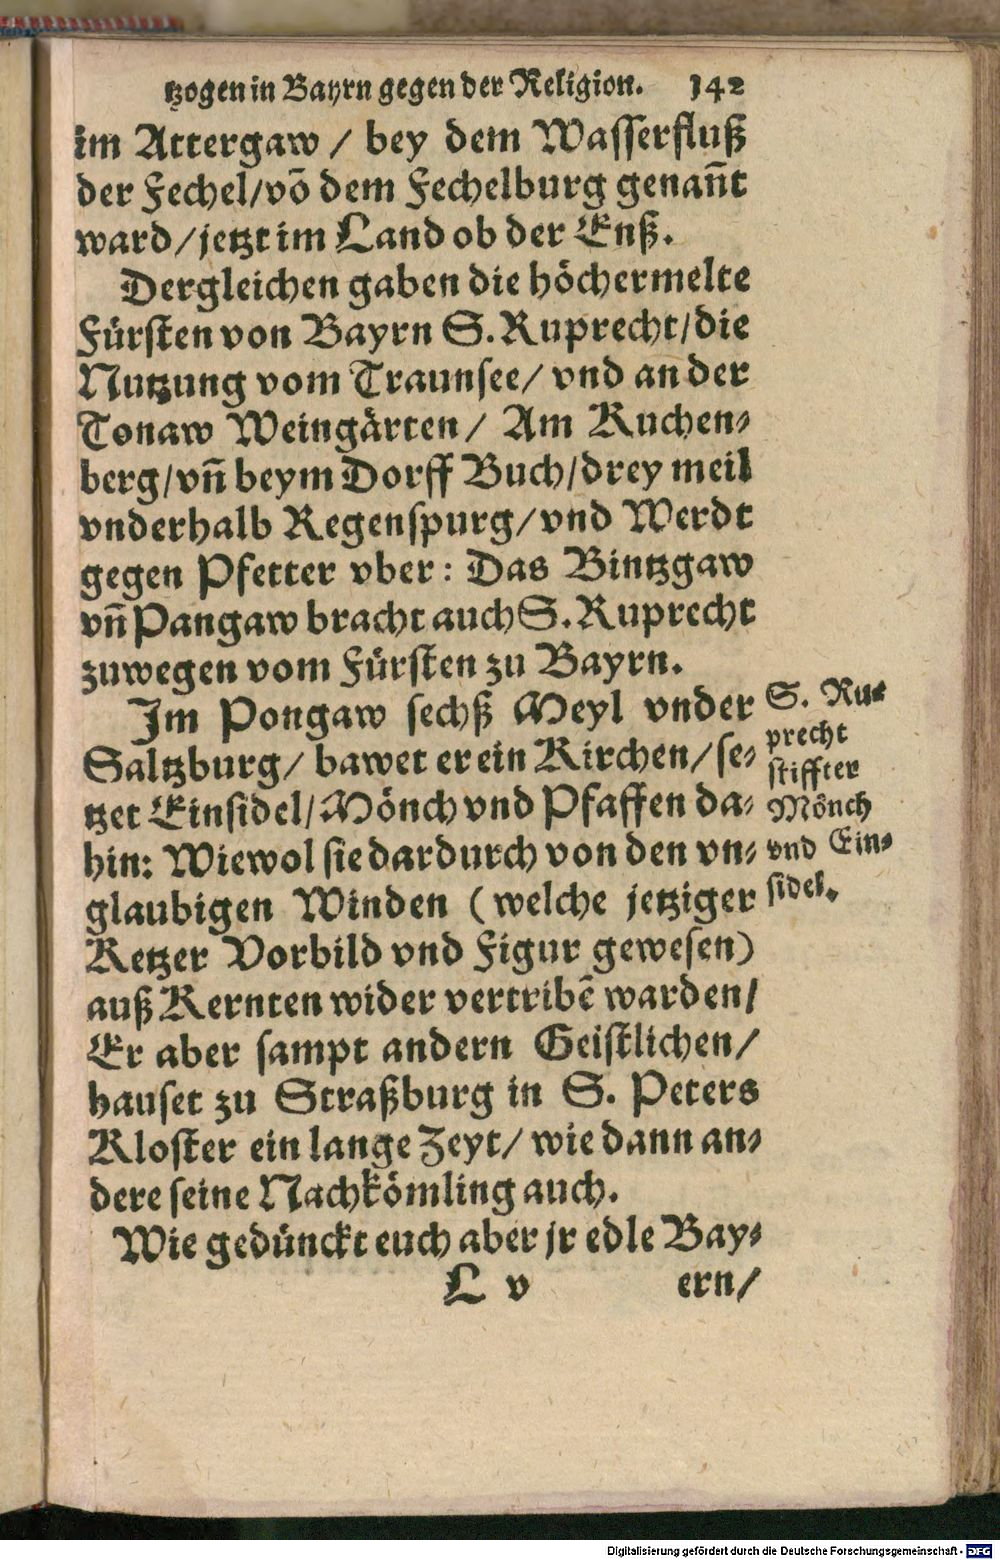 tzogen in Bayrn gegen der Religion. 142
im Attergaw / bey dem Wasserfluß
der Fechel/võ dem Fechelburg genañt
ward/jetzt im Land ob der Enß.
Dergleichen gaben die höchermelte
Fürsten von Bayrn S. Ruprecht/die
Nutzung vom Traunsee/ vnd an der
Tonaw Weingärten/ Am Kuchen-
berg/vñ beym Dorff Buch/drey meil
vnderhalb Regenspurg/vnd Werdt
gegen Pfetter vber: Das Bintzgaw
vñ Pangaw bracht auch S. Ruprecht
zuwegen vom Fürsten zu Bayrn.
Im Pongaw sechß Meyl vnder
Saltzburg/ bawet er ein Kirchen/se-
tzet Einsidel/Mönch vnd Pfaffen da-
hin: Wiewol sie dardurch von den vn-
glaubigen Winden (welche jetziger
Ketzer Vorbild vnd Figur gewesen)
auß Kernten wider vertribẽ warden/
Er aber sampt andern Geistlichen/
hauset zu Straßburg in S. Peters
Kloster ein lange Zeyt/ wie dann an-
dere seine Nachkömling auch.
Wie gedünckt euch aber jr edle Bay-
L v ern/
S. Ru-
precht
stiffter
Mönch
vnd Ein-
sidel.
Digitalisierung gefördert durch die Deutsche Forschungsgemeinschaft - DFG